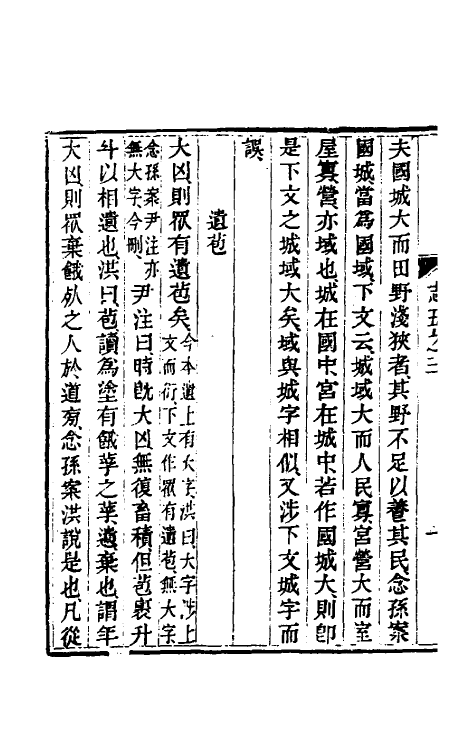 夫國城大而田野淺狹者其野不足以養其民念孫案
國城當爲國域下文云城域大而人民寡宮營大而室
屋寡營亦域也城在國中宮在城中若作國城大則卽
是下文之城域大矣域與城字相似又涉下文城字而
誤
遺苞
大凶則眾有遺苞矣今本遺上有大字洪曰大字涉上
文而衍下文作眾有遺苞無大字
念孫案尹注亦
無大字今刪尹注曰時旣大凶無復畜積但苞裹升
斗以相遺也洪曰苞讀爲塗有餓莩之莩遺棄也謂年
大凶則眾棄餓殍之人於道旁念孫案洪說是也凡從
志五之二
一